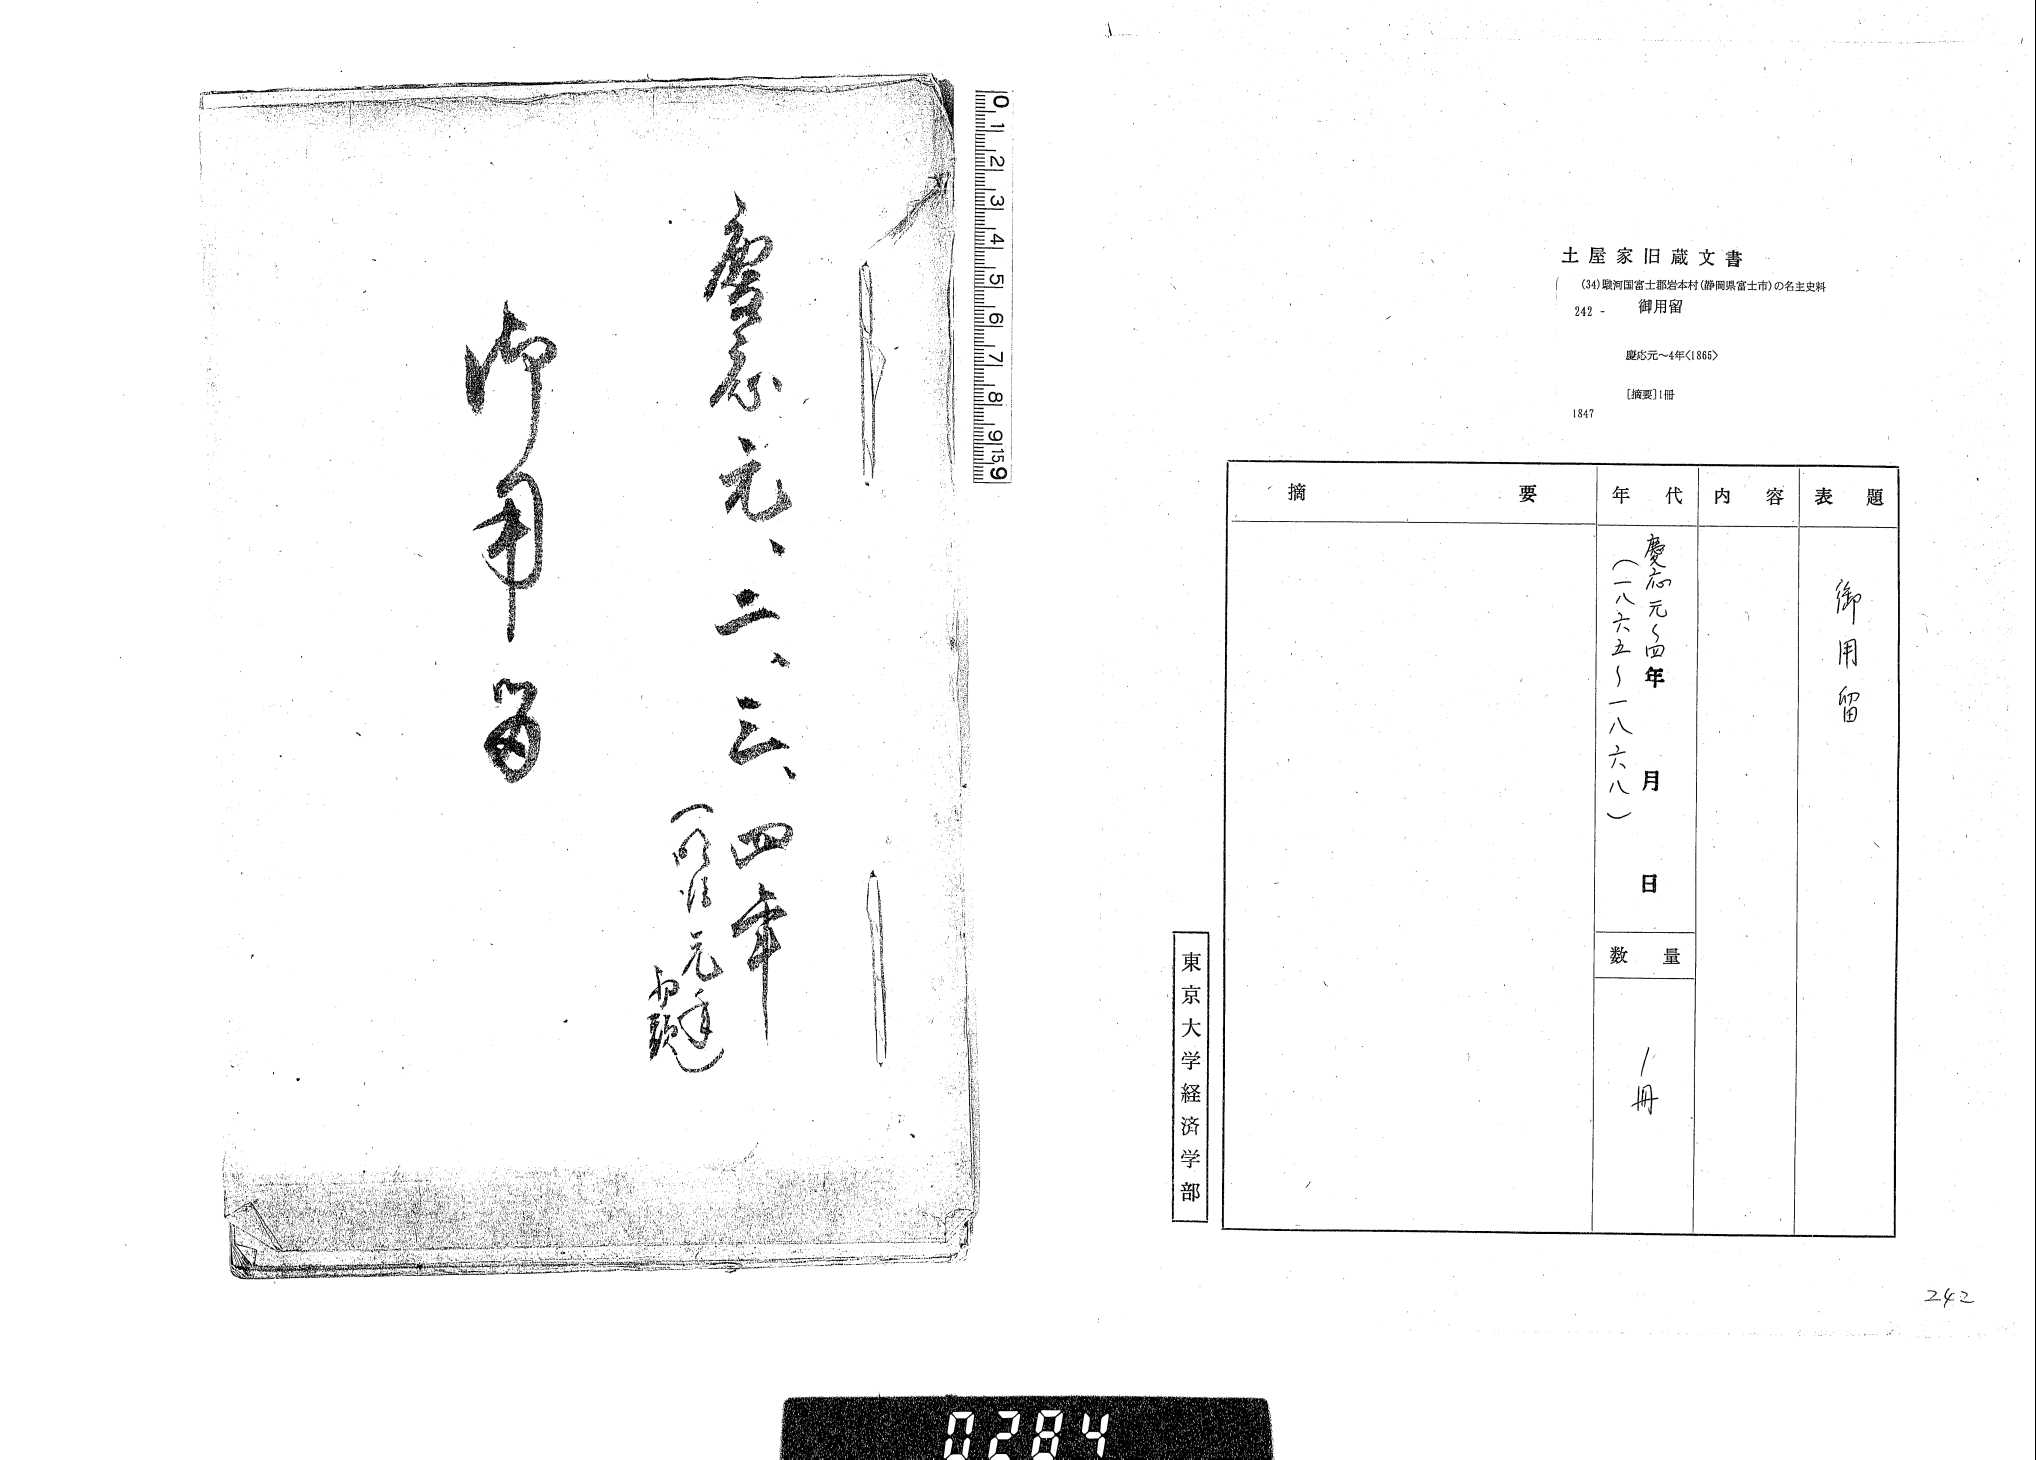 土屋家旧蔵文書
(34)駿河国富士郡岩本村(静岡県富士市)の名主史料
242 - 御用留
慶応元～4年<1865>
[摘要]1冊
1847
表題
御用留
内容
年代
慶応元～四年 月 日
(一八六五～一八六八)
数量
1冊
摘要
東京大学経済学部
242
0 1 2 3 4 5 6 7 8 9 15 9
慶応元、二、三、四年
(明治元年)
御用留
0284